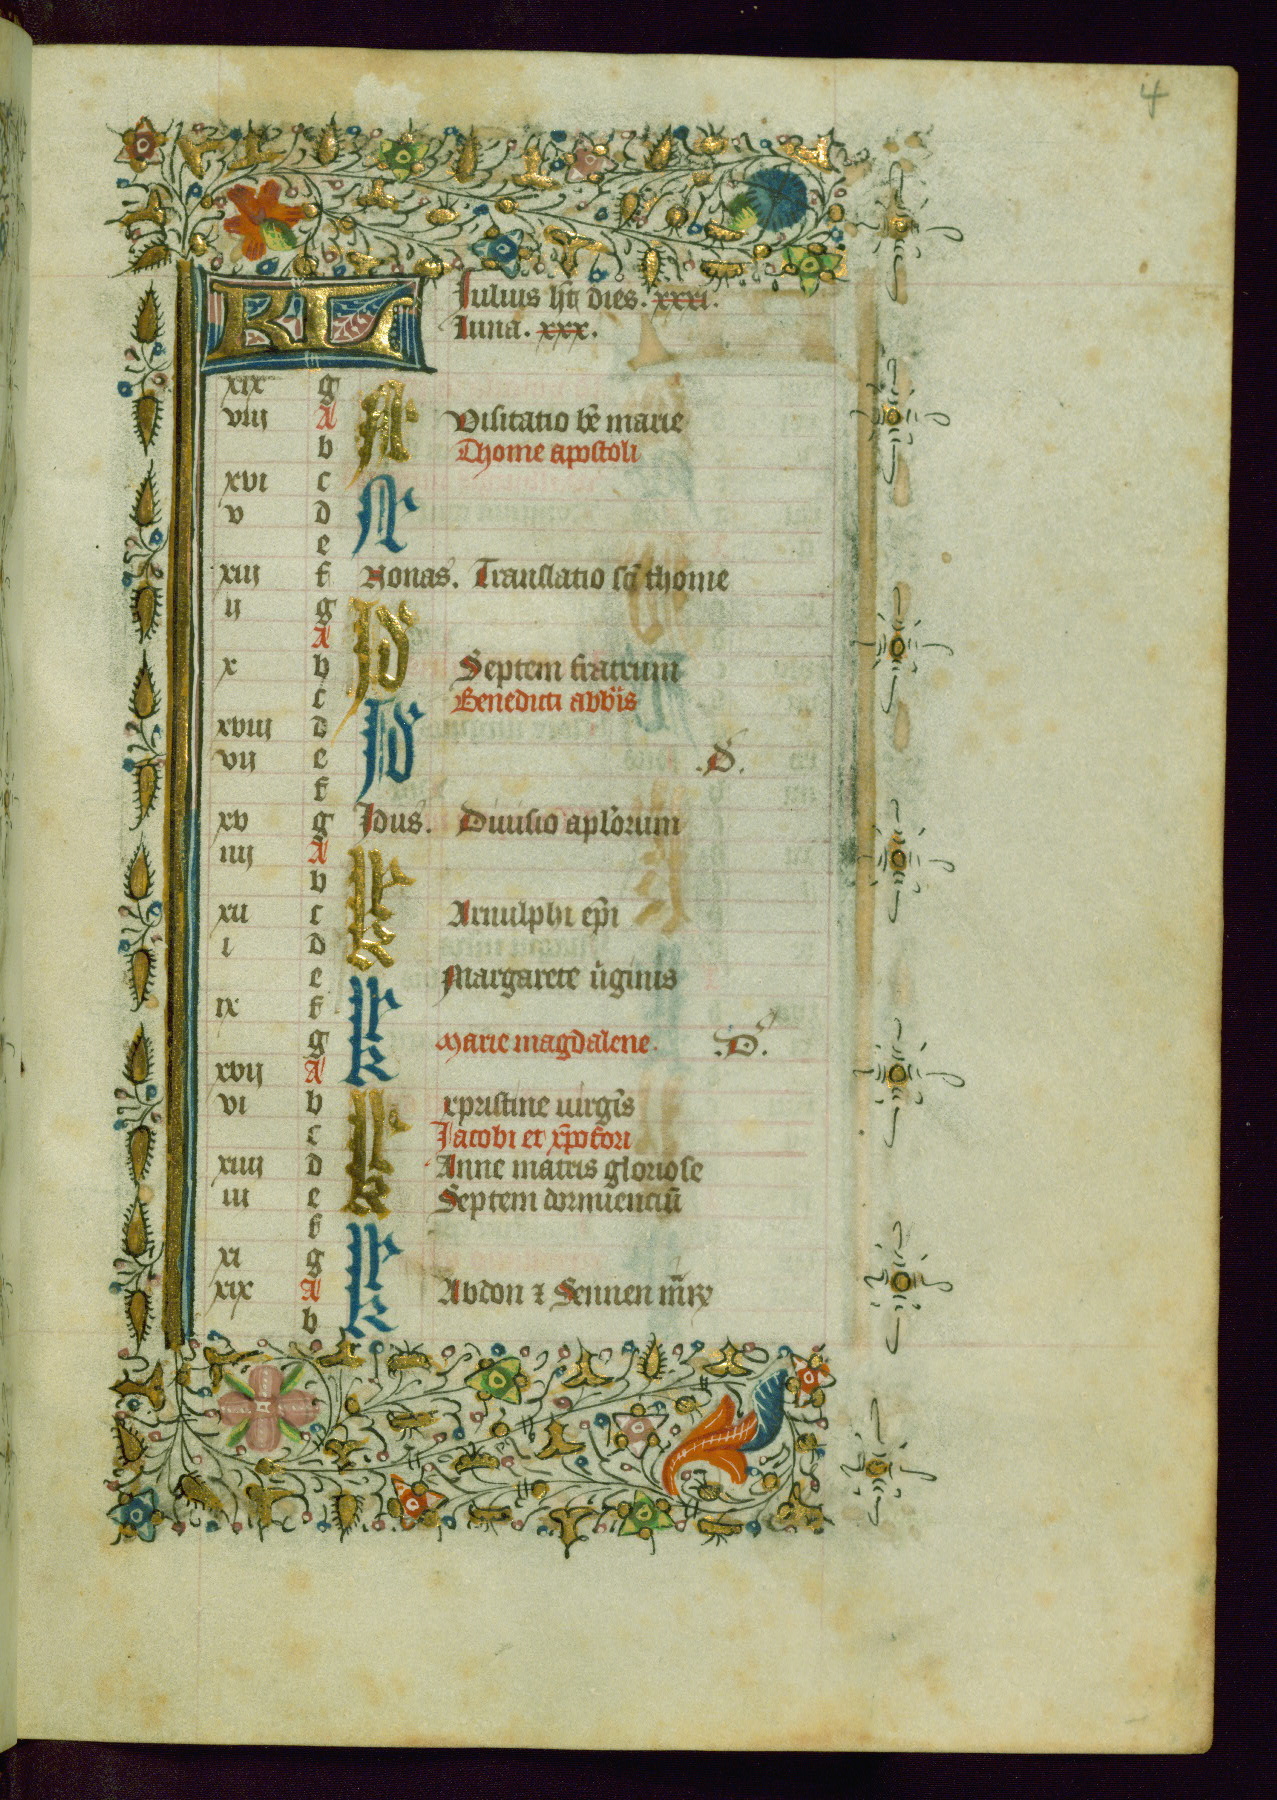 4
KL Iulius ht͛ dies. xxxi.
luna. xxx.
xix g
viij A N Visitatio bē marie
b Thome apostoli
xvi c
v d N
e
xiij f Nonas. Translatio sc̄i thome
ij g Id
A
x b Septem fratrum
c Benedicti abb̄is
xviij d Id
vij e .d.
f
xv g Idus. Diuisio apl'orum
iiij A kl
b
xij c Arnulphi ep̄i
i d
e Margarete ūginis
ix f kl
g Marie magdalene. .D.
xvij A
vi b kl xpristine uirgīs
c Jacobi et xp̄ofori
xiiij d Anne matris gloriose
iij e Septem dormienciū
f kl
xi g
xix A Abdon ⁊ Sennen mr̄ꝝ
b